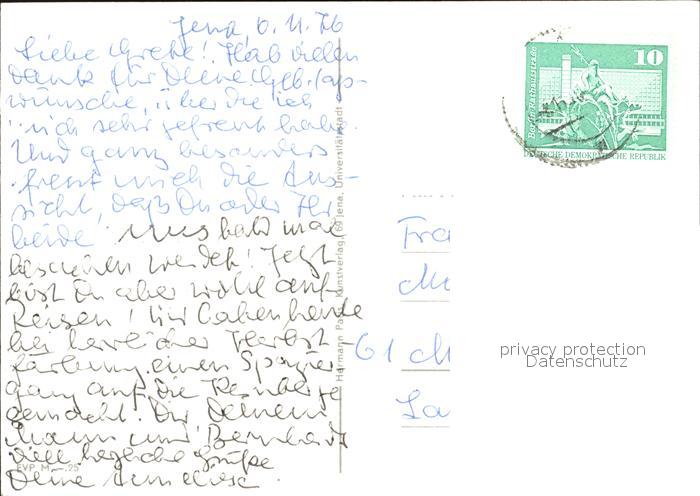 Jena, 6.11.76
Liebe Grete! Hab vielen
Dank für Deine Geb.tags-
wünsche, über die ich
mich sehr gefreut habe.
Und ganz besonders
freut mich die Aus-
sicht, daß Du oder Ihr
beide uns bald mal
besuchen werdet! Jetzt
bist Du aber wohl auf
Reisen! Wir haben heute
bei herrlicher Herbst-
färbung einen Spazier-
gang auf die Kernberge
gemacht. Dir, Deinem
Mann und Bernhard
viele herzliche Grüße
Deine Anneliese
EVP M -,25
Kunstverlag, 69 Jena, Universitätsstadt
10
Berlin, Rathausstraße
DEUTSCHE DEMOKRATISCHE REPUBLIK
Fra
61
privacy protection
Datenschutz